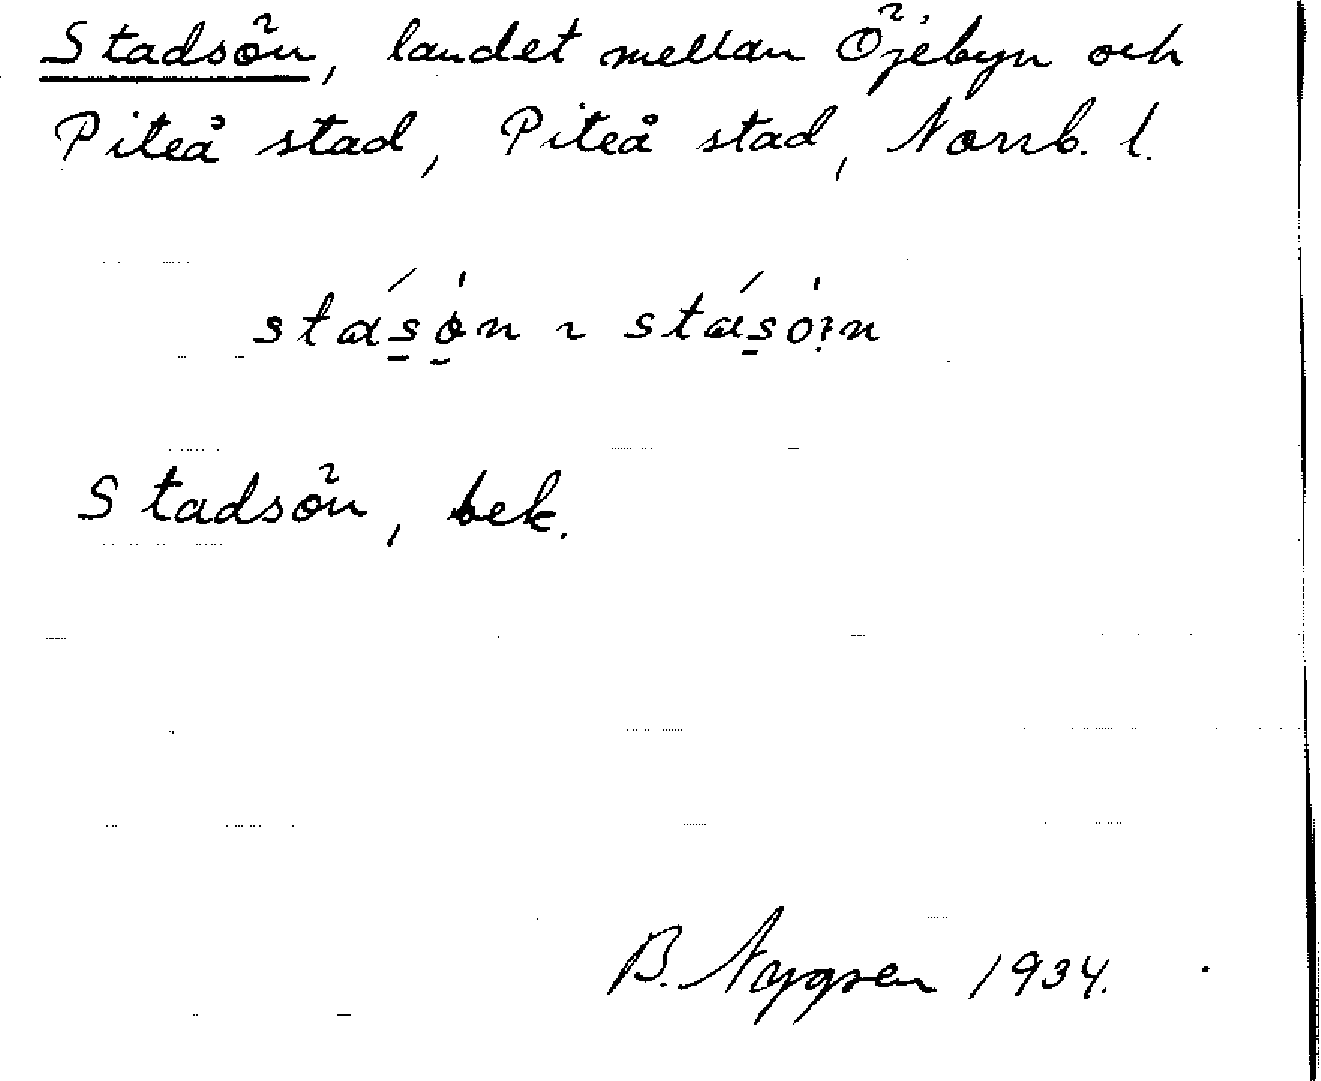 Stadsön, landet mellan Öjebyn och
Piteå stad, Piteå stad, Norrb. l.
Stadsön, bek.
B. Nygren 1934.